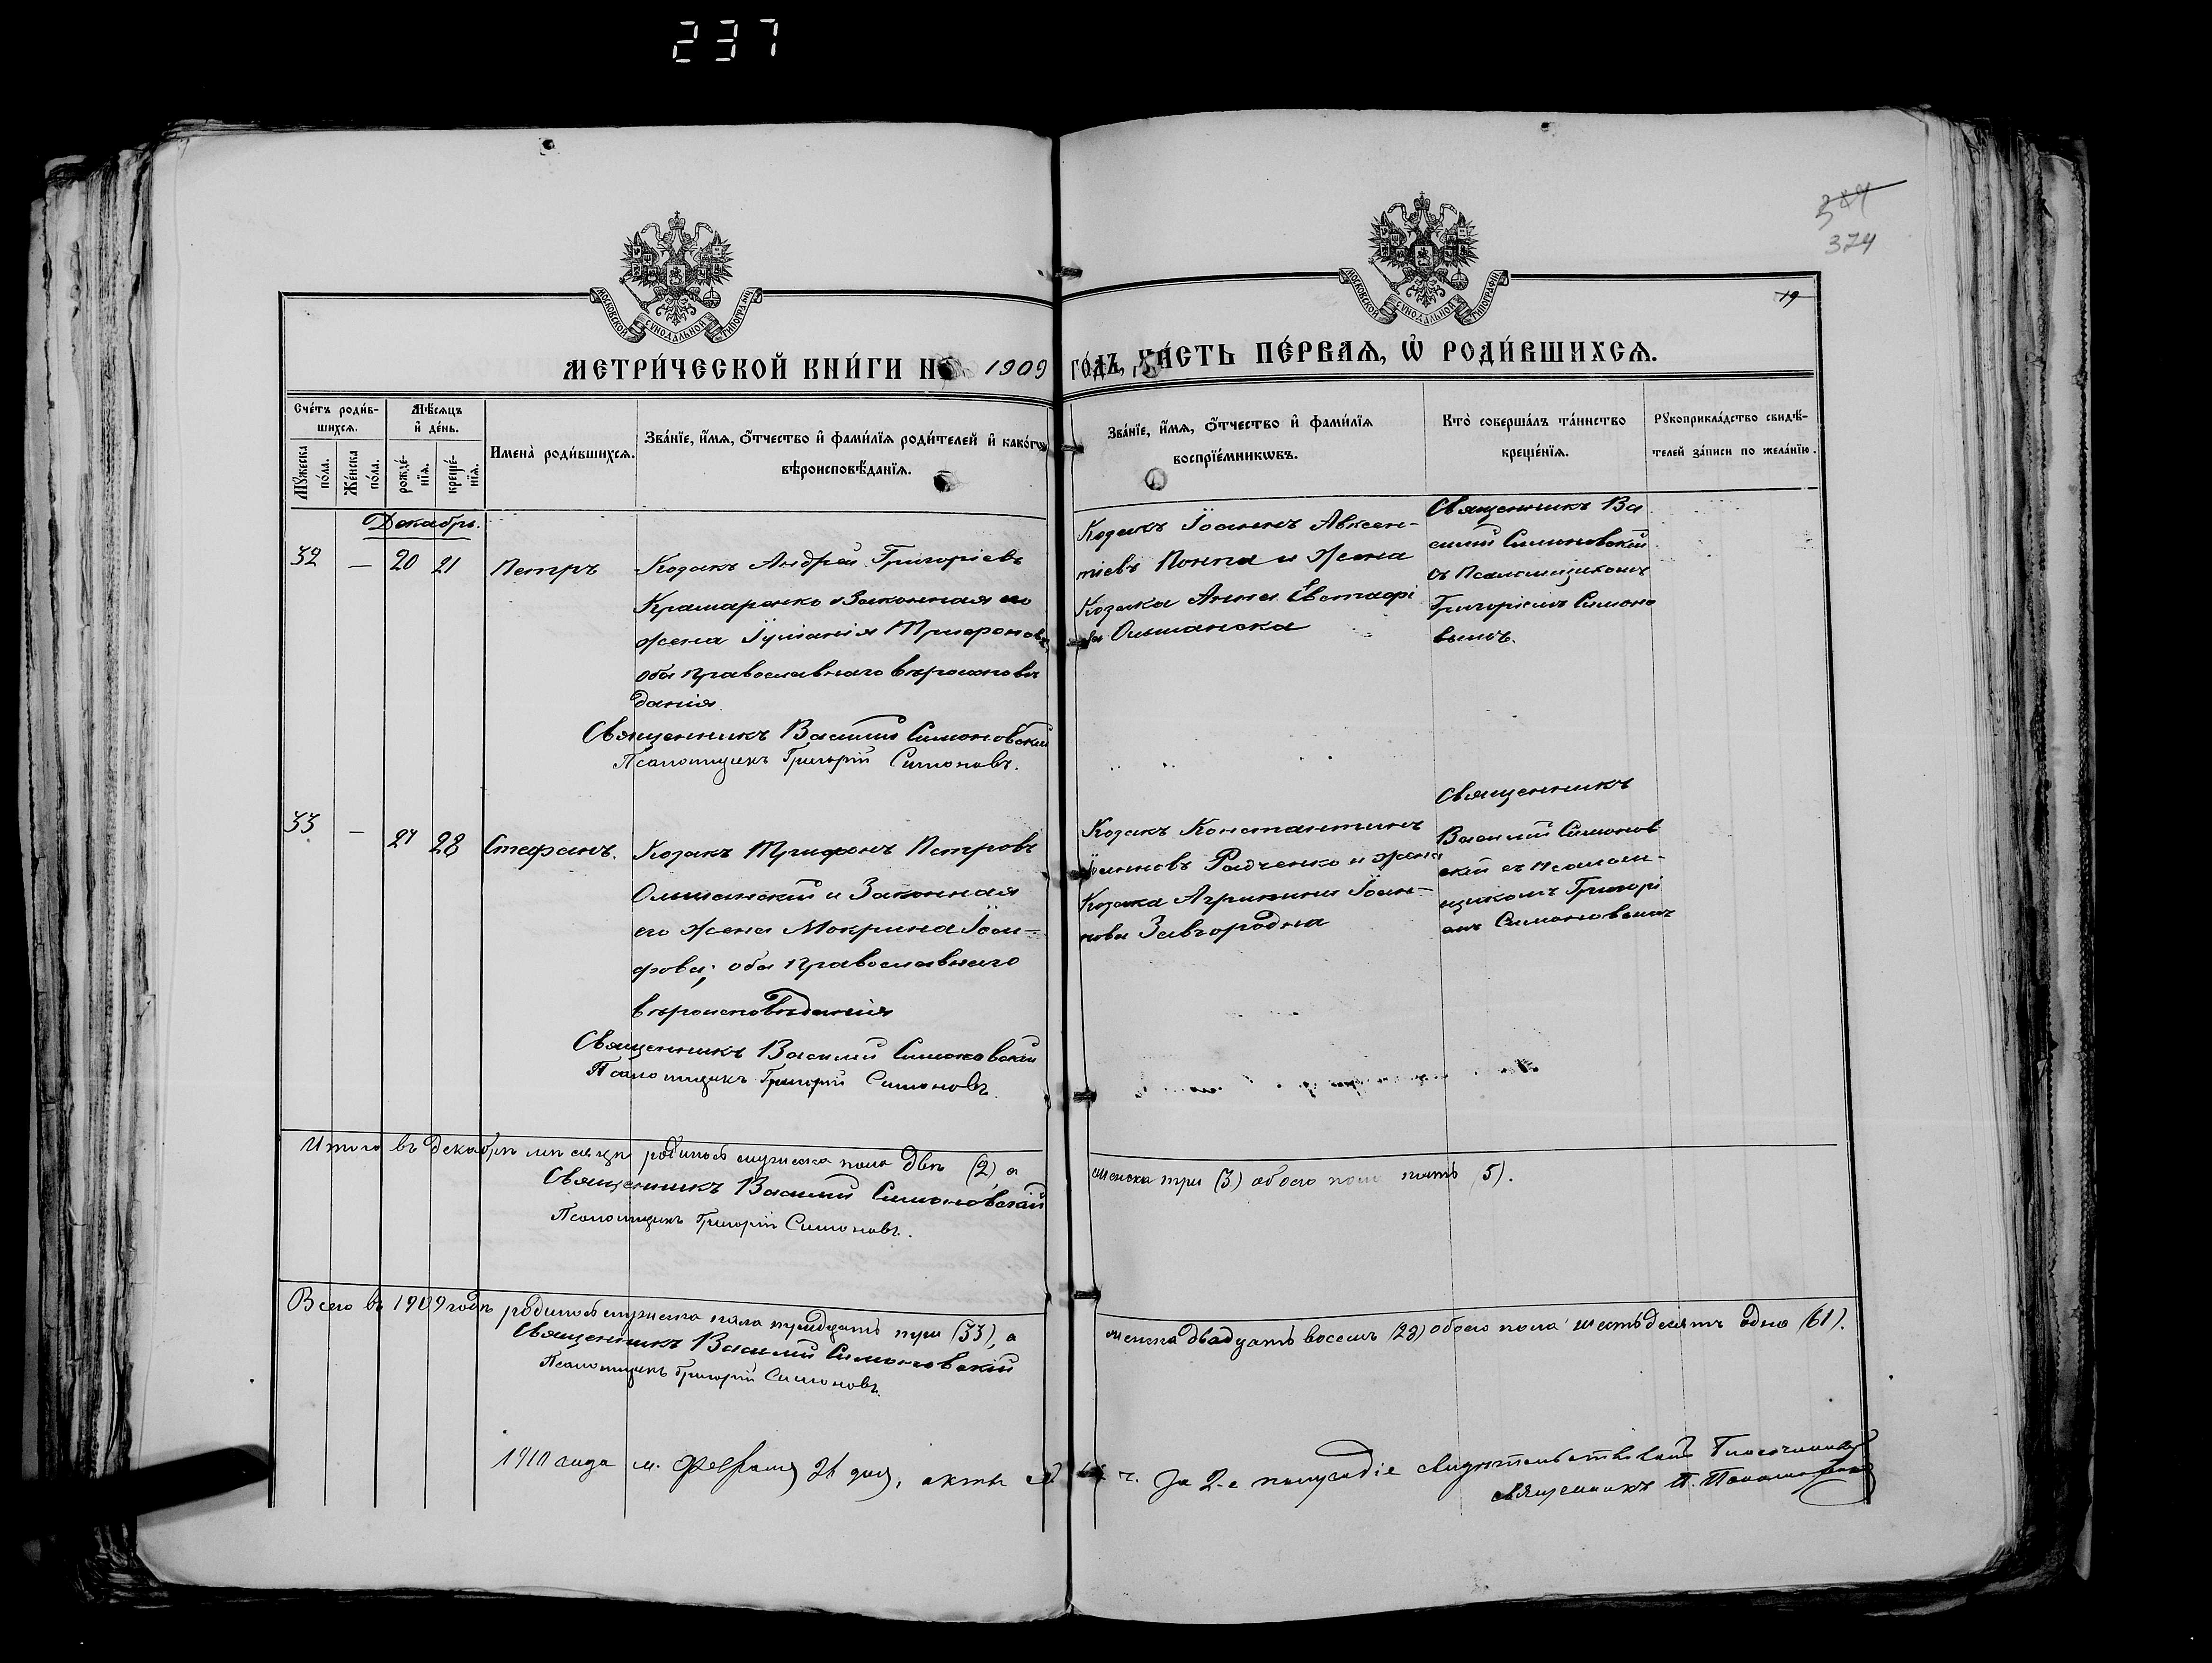 237
344
374
19
МОСКОВСКОЙ СѴНОДАЛЬНОЙ ТИПОГРАФІИ
МОСКОВСКОЙ СѴНОДАЛЬНОЙ ТИПОГРАФІИ
МЕТРИ́ЧЕСКОЙ КНИ́ГИ НА 1909 ГО́ДЪ, ЧА́СТЬ ПЕ́РВАѦ, Ѡ҆ РОДИ́ВШИХСѦ.
Сче́тъ роди́в-
шихсѧ.
Мꙋ́жеска
по́ла.
Же́нска
по́ла.
Мѣ́сѧцъ
и҆ де́нь.
рожде́-
нїѧ.
креще́-
нїѧ.
Имена̀ роди́вшихсѧ.
Зва́нїе, и҆́мѧ, ѻ҆́тчество и҆ фами́лїѧ роди́телей и҆ како́гѡ
вѣроисповѣ́данїѧ.
Зва́нїе, и҆́мѧ, ѻ҆́тчество и҆ фами́лїѧ
воспрїе́мникѡвъ.
Кто̀ соверша́лъ та́инство
креще́нїѧ.
Рꙋкоприкла́дство свидѣ́-
телей за́писи по жела́нїю.
Декабрь.
32 — 20 21 Петръ
Козакъ Андрей Григоріевъ
Крамаренко и Законная его
жена Іуліанія Трифонова,
оба православнаго вѣроисповѣ
данія.
Священникъ Василій Симоновскій
Псаломщикъ Григорій Симоновъ.
Козакъ Іоаннъ Авксен-
тіевъ Поппа и жена
Козака Анна Евстафі
ва Ольшанска
Священникъ Ва
силій Симоновскій
съ Псаломщикомъ
Григоріемъ Симоно
вымъ.
33 — 27 28 Стефанъ.
Козакъ Трифонъ Петровъ
Ольшанскій и Законная
его жена Мокрина Іоси-
фова; оба православнаго
вѣроисповѣданія
Священникъ Василій Симоновскій
Псаломщикъ Григорій Симоновъ.
Козакъ Константинъ
Іоанновъ Радченко и жена
Козака Агрипина Іоан-
нова Завгородна
Священникъ
Василій Симонов
скій съ Псалом-
щикомъ Григорі
емъ Симоновымъ
Итого въ декабрѣ мѣсяцѣ родилось мужеска пола два (2), а
женска три (3) обоего пола пять (5).
Священникъ Василій Симоновскій
Псаломщикъ Григорій Симоновъ.
Всего въ 1909 годѣ родилось мужеска пола тридцать три (33), а
женска двадцать восемь (28) обоего пола шестьдесятъ одно (61).
Священникъ Василій Симоновскій
Псаломщикъ Григорій Симоновъ.
1910 года м. Февраля 26 дня, акты
ч. За 2-е полугодіе свидѣтельствовалъ Благочинный
священникъ П.